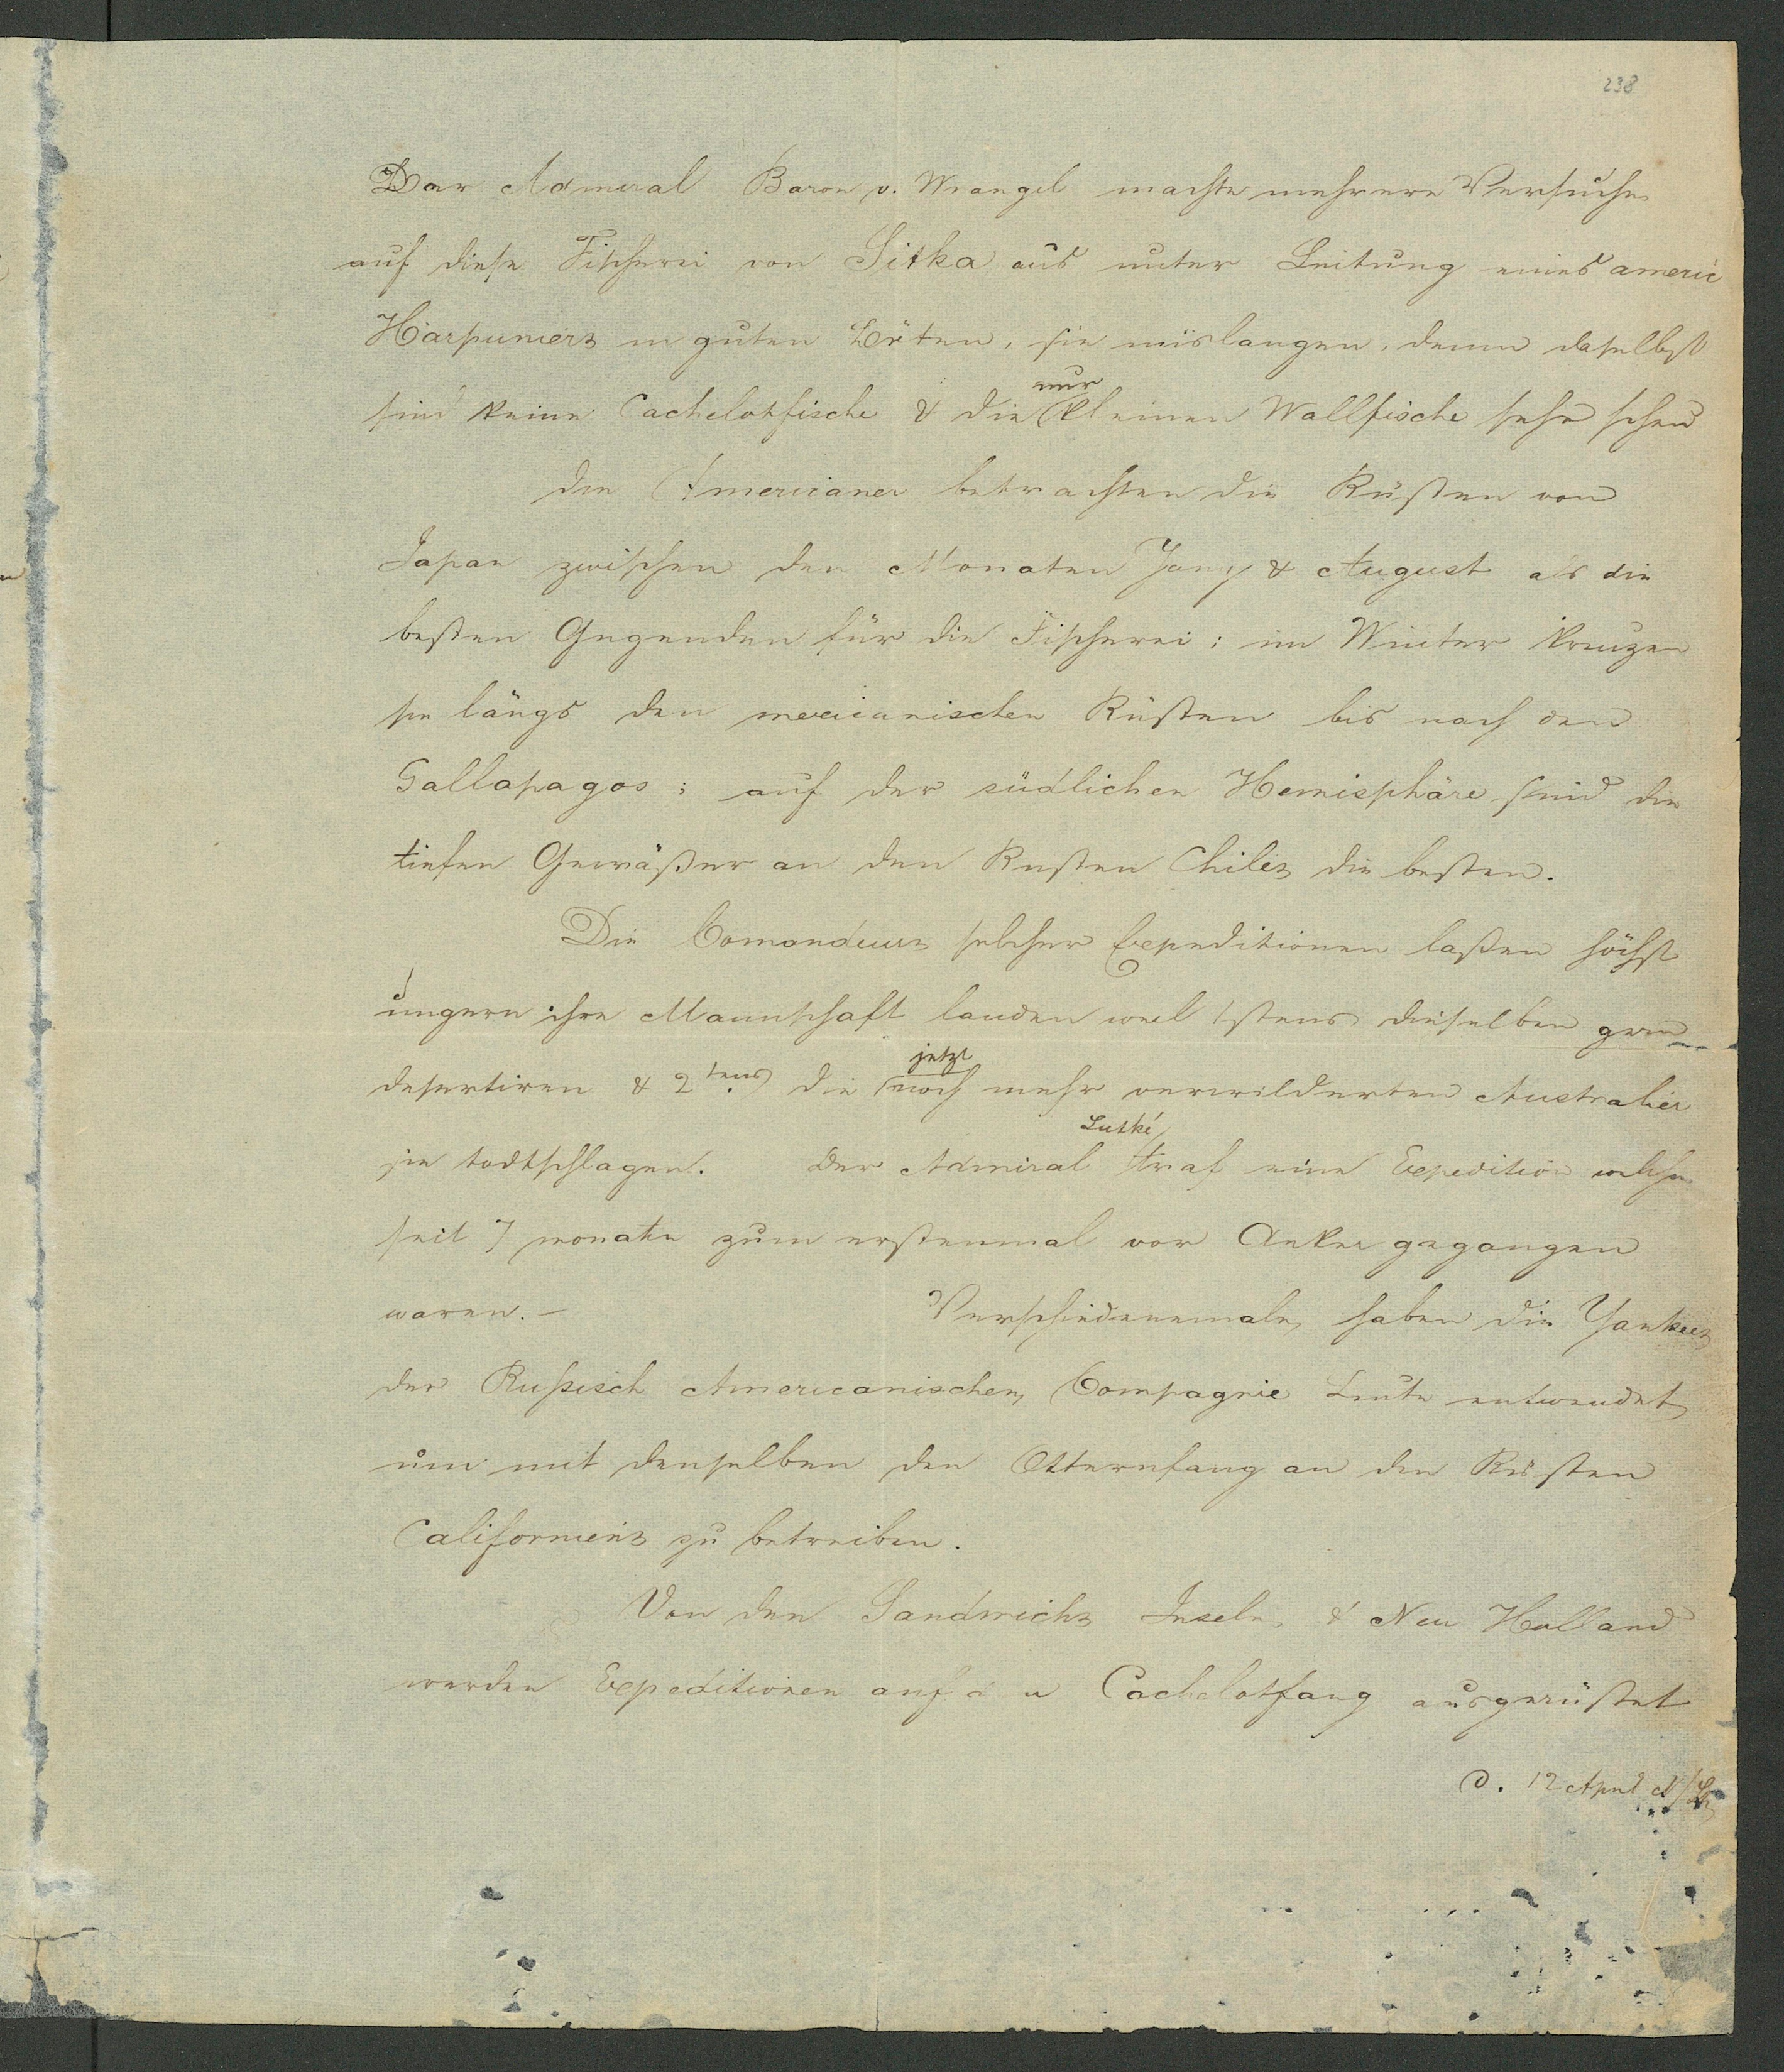 238
Der Admiral Baron v. Wrangel machte mehrere Versuche
auf diese Fischerei von Sitka aus unter Leitung eines americ
Harpuniers in guten Böten, sie mislangen, denn daselbst
sind keine Cachelotfische & die nur kleinen Wallfische sehr scheu
Die Americaner betrachten die Küsten von
Japan zwischen den Monaten & August als die
besten Gegenden für die Fischerei; im Winter kreuzen
sie längs den mexicanischen Küsten bis nach den
Gallapagos; auf der südlichen Hemisphäre sind die
tiefen Gewäßer an den Kusten Chiles die besten.
Die Comandeurs solcher Expeditionen laßen höchst
ungern ihre Mannschaft landen weil 1stens dieselben gern
desertiren & 2tens die jetzt noch mehr verwilderten Australier
sie todtschlagen. Der Admiral Lutké traf eine Expedition welche
seit 7 monate zum erstenmal vor Anker gegangen
waren. –
Verschiedenemale haben die Yankees
der Rußisch Americanischen Compagnie Leute entwendet
um mit denselben den Otternfang an den Küsten
Californiens zu betreiben.
Von den Sandwichs Inseln & Neu Holland
werden Expeditionen auf den Cachelotfang ausgerüstet
d. 12 April